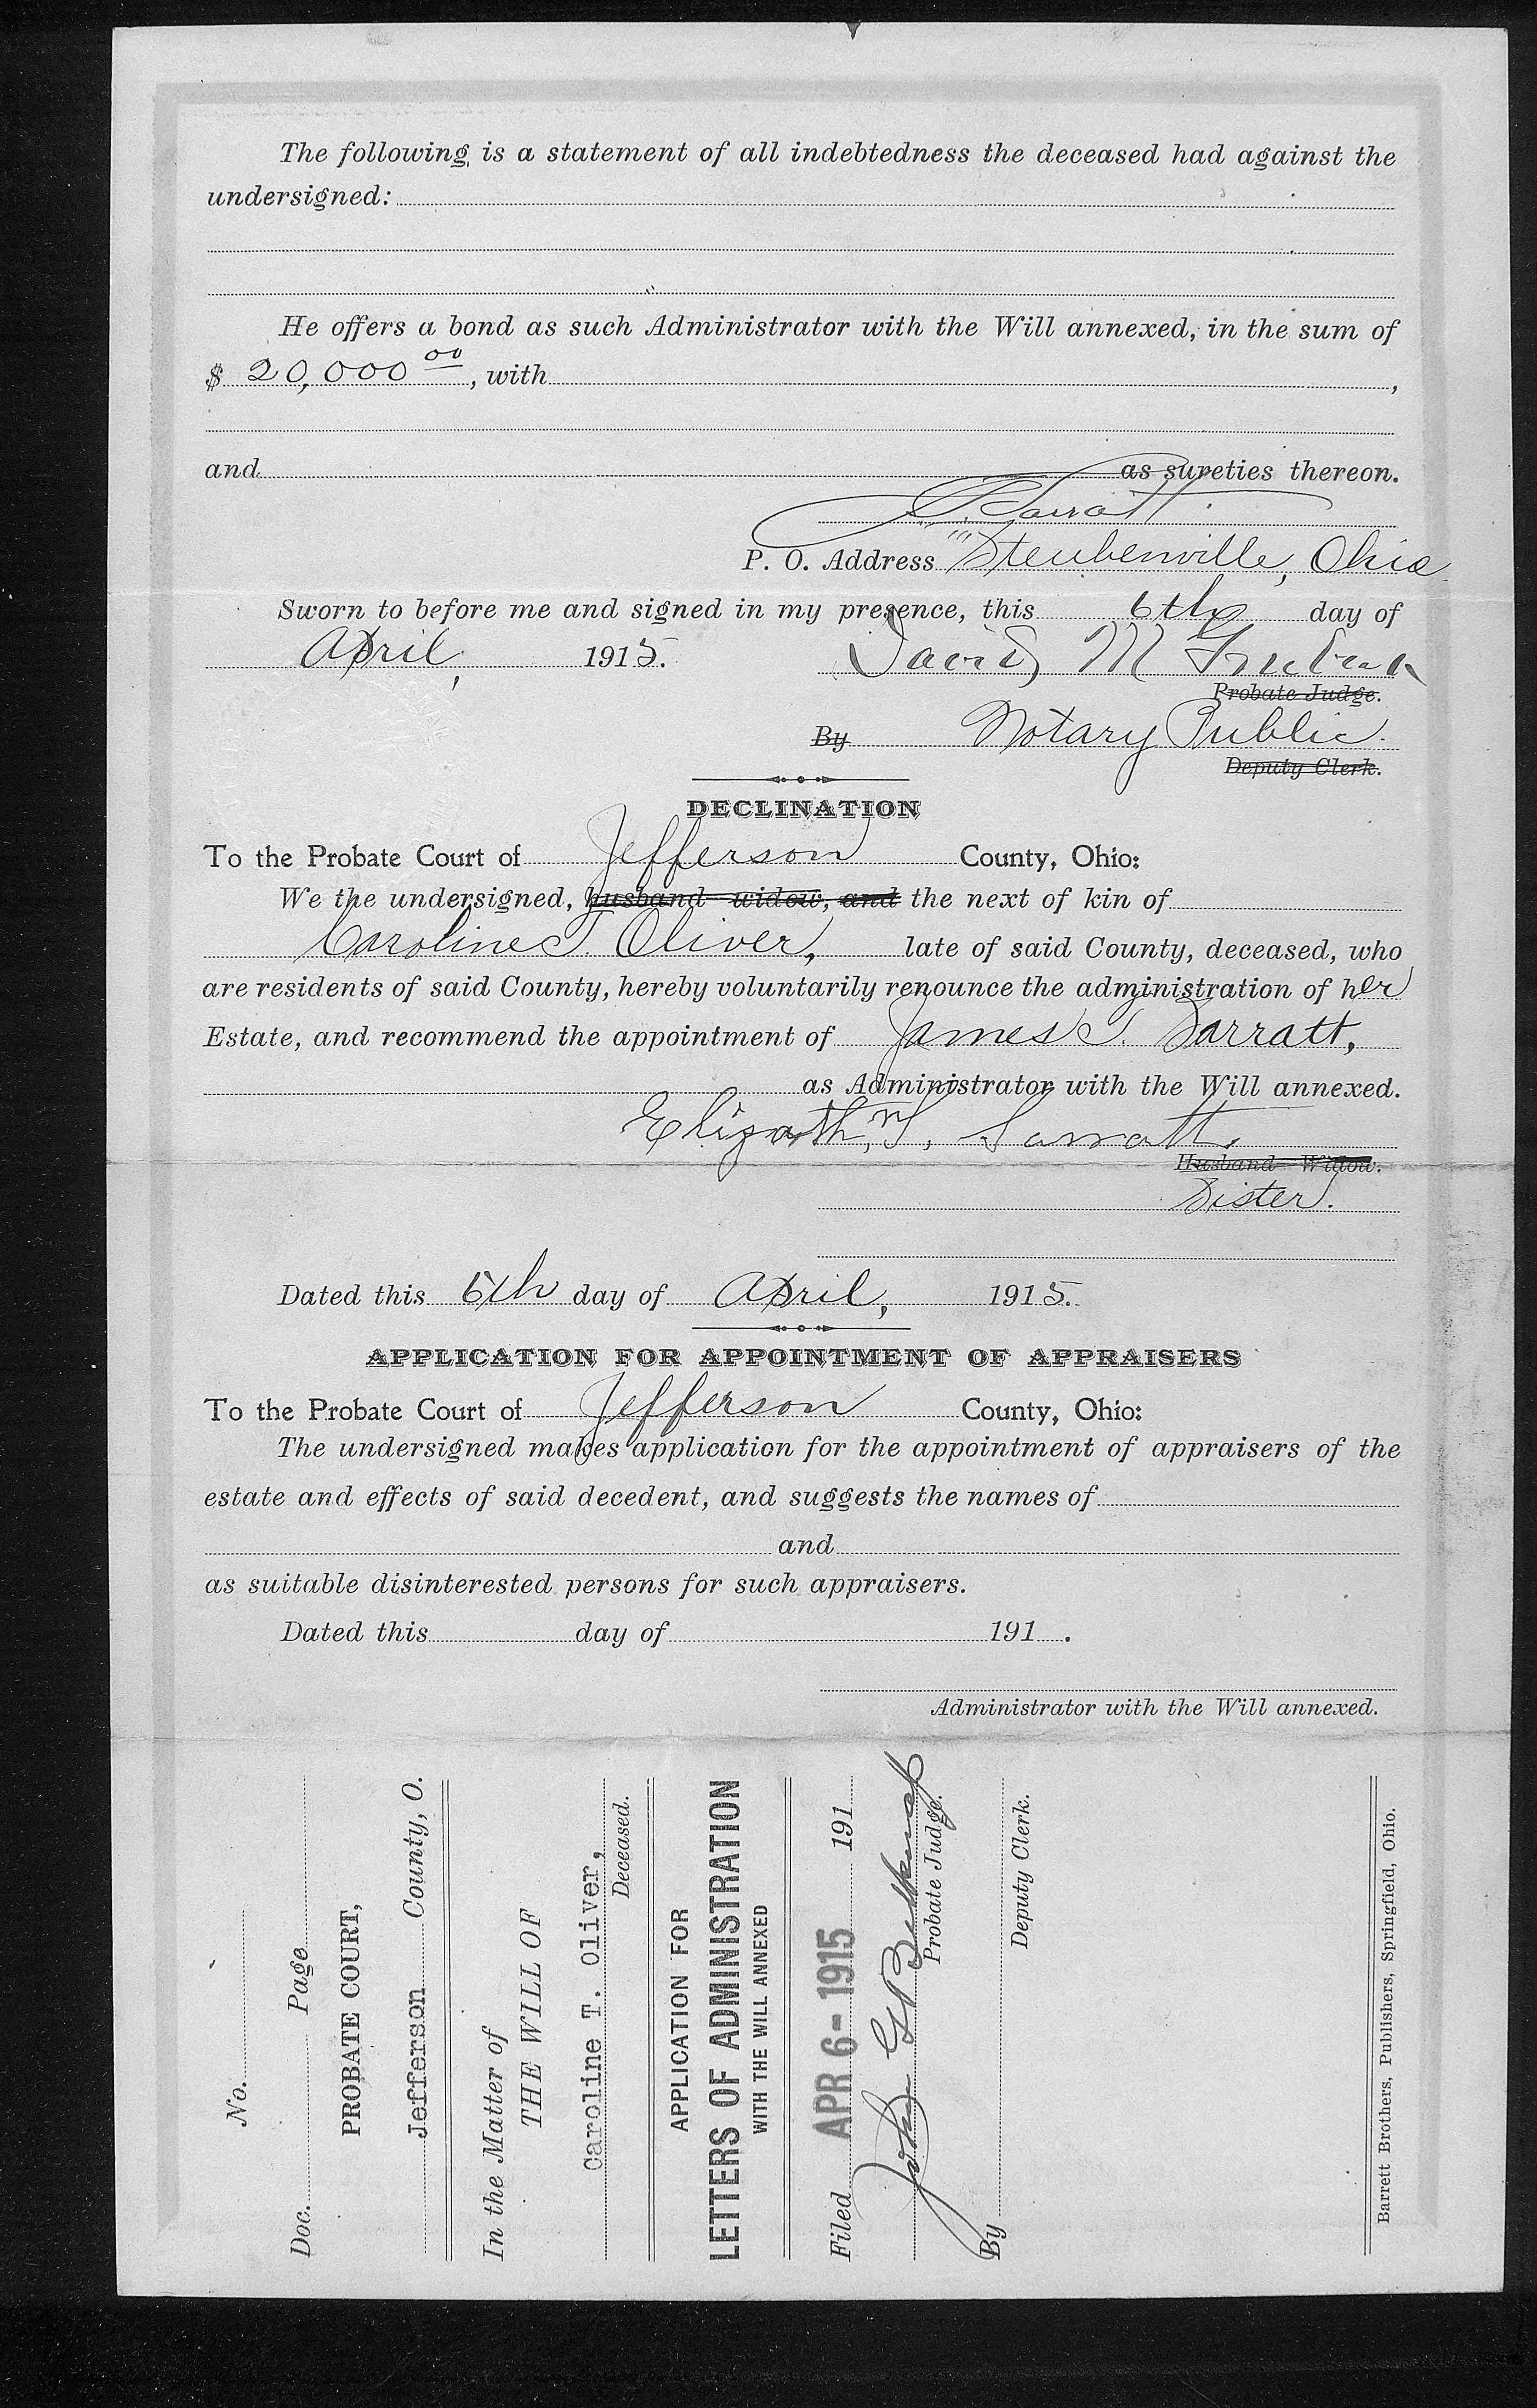 The following is a statement of all indebtedness the deceased had against the
undersigned:
He offers a bond as such Administrator with the Will annexed, in the sum of
$ 20,000 00, with ,
and as sureties thereon.
Sarratt
P. O. Address Steubenville, Ohio
Sworn to before me and signed in my presence, this 6th day of
April, 1915.
David M
Probate Judge.
By Notary Public.
Deputy Clerk.
DECLINATION
To the Probate Court of Jefferson County, Ohio:
We the undersigned, husband widow, and the next of kin of
Caroline T. Oliver, late of said County, deceased, who
are residents of said County, hereby voluntarily renounce the administration of her
Estate, and recommend the appointment of James T. Sarratt,
as Administrator with the Will annexed.
T. Sarratt.
Husband Widow.
Sister.
Dated this 6th day of April, 1915.
APPLICATION FOR APPOINTMENT OF APPRAISERS
To the Probate Court of Jefferson County, Ohio:
The undersigned makes application for the appointment of appraisers of the
estate and effects of said decedent, and suggests the names of
and
as suitable disinterested persons for such appraisers.
Dated this day of 191 .
Administrator with the Will annexed.
No.
Doc. Page
PROBATE COURT,
Jefferson County, O.
In the Matter of
THE WILL OF
Caroline T. Oliver,
Deceased.
APPLICATION FOR
LETTERS OF ADMINISTRATION
WITH THE WILL ANNEXED
Filed APR 6- 1915 191
John G Belknap
Probate Judge.
By
Deputy Clerk.
Barrett Brothers, Publishers, Springfield, Ohio.